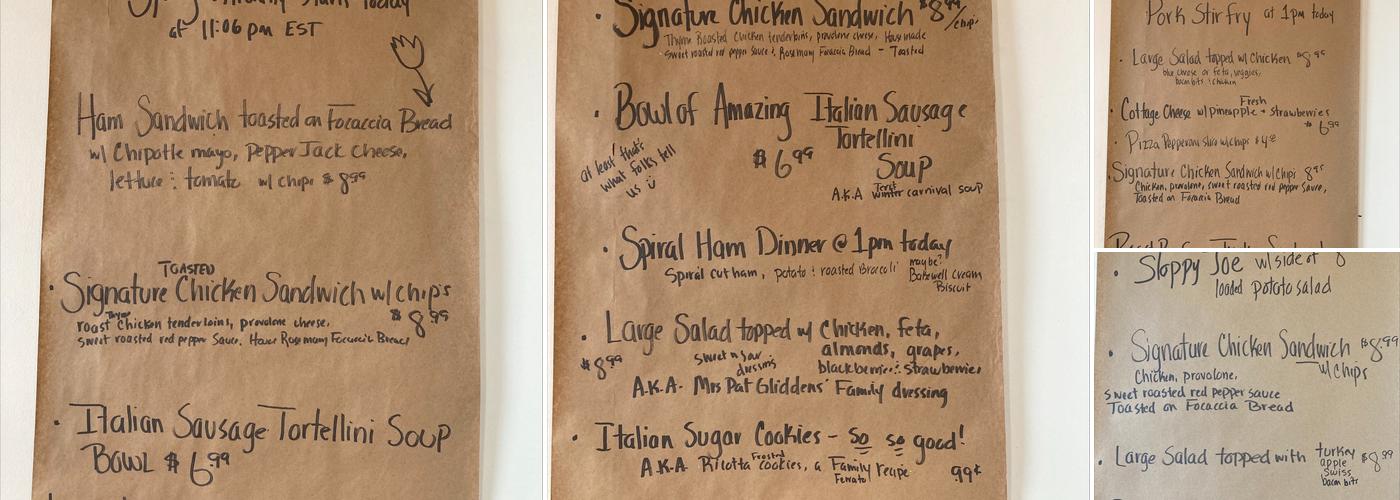 today
at 11:06 pm EST
Ham Sandwich toasted on Focaccia Bread
w/ Chipotle mayo, Pepper Jack Cheese,
lettuce & tomato w/ chips $8.99
TOASTED
• Signature Chicken Sandwich w/ chips
$8.99
Thyme
roast Chicken tenderloins, provolone cheese,
Sweet roasted red pepper Sauce, House Rosemary Foccacia Bread
• Italian Sausage Tortellini Soup
BOWL $6.99
• Signature Chicken Sandwich $8.99 /chips
Thyme Roasted Chicken tenderloins, provolone cheese, House made
Sweet roasted red pepper Sauce & Rosemary Foccacia Bread - Toasted
• Bowl of Amazing Italian Sausage
Tortellini
Soup
$6.99
at least that's
what folks tell
us
A.K.A winter carnival soup
• Spiral Ham Dinner @ 1pm today
Spiral cut ham, potato & roasted Broccoli
maybe?
Bakewell Cream
Biscuit
• Large Salad topped w/ Chicken, feta,
almonds, grapes,
blackberries & strawberries
$8.99
sweet n sour
dressing
A.K.A. Mrs Pat Gliddens' Family dressing
• Italian Sugar Cookies - So so good!
Frosted
A.K.A Ricotta Cookies, a Family recipe
Ferrato
.99¢
Pork Stir fry at 1pm today
• Large Salad topped w/ Chicken $8.95
blue cheese or feta, veggies,
bacon bits & chicken
Fresh
• Cottage Cheese w/ pineapple + strawberries
$6.99
• Pizza Pepperoni slice w/ chips
• Signature Chicken Sandwich w/ chips 8.95
Chicken, provolone, sweet roasted red pepper Sauce,
Toasted on Focaccia Bread
• Sloppy Joe w/ side of
loaded potato salad
• Signature Chicken Sandwich $8.99
w/ chips
Chicken, provolone,
sweet roasted red pepper sauce
Toasted on Focaccia Bread
• Large Salad topped with turkey $8.99
apple
Swiss
bacon bits